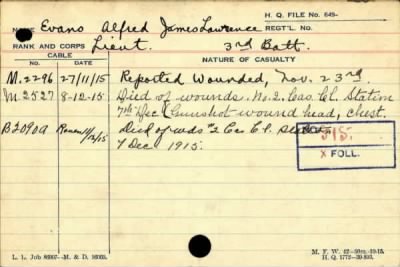 H. Q. FILE No. 649-
NAME Evans Alfred James Lawrence REGT'L. No.
RANK AND CORPS Lieut. 3rd Batt.
CABLE
No. DATE NATURE OF CASUALTY
M.2296 27/11/15 Reported Wounded, Nov. 23rd.
M.2527 8-12-15 Died of wounds. No. 2. Cas Cl. Station
7th Dec (Gunshot wound head, chest.
B2090a 11/12/15 Died of wds #2 Cas Cl. Station
7 Dec 1915.
515.
x FOLL.
L. L. Job 86907—M. & D. 16065.
M. F. W. 42—50m.-10-15.
H. Q. 1772-39-893.